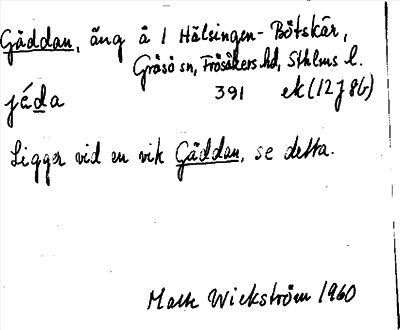 Gäddan, äng å 1 Hälsingen-Båtskär,
Gräsö sn, Frösåkers hd, Sthlms l.
jéda 391 ek (12J8b)
Ligger vid en vik Gäddan, se detta.
Mats Wickström 1960